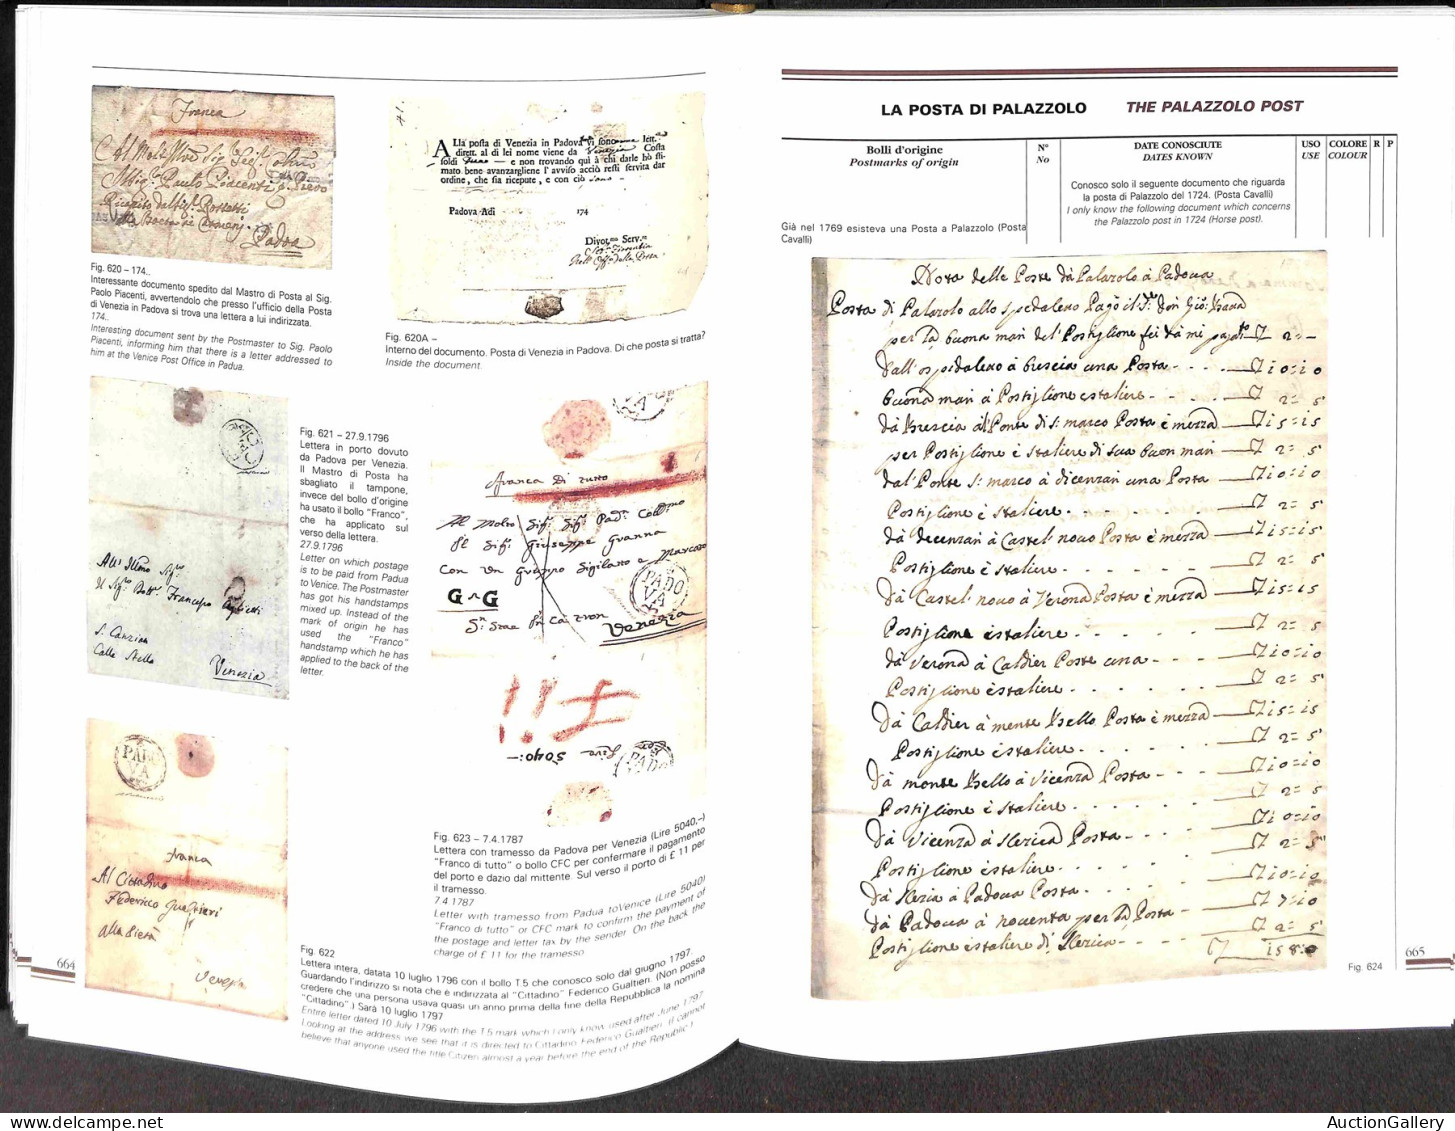 Franca
Padoa
Fig. 620 – 174..
Interessante documento spedito dal Mastro di Posta al Sig.
Paolo Piacenti, avvertendolo che presso l'ufficio della Posta
di Venezia in Padova si trova una lettera a lui indirizzata.
174..
Interesting document sent by the Postmaster to Sig. Paolo
Piacenti, informing him that there is a letter addressed to
him at the Venice Post Office in Padua.
ALla posta di Venezia in Padova vi sono lett.
dirett. al di lei nome viene da Venezia Costa
soldi — e non trovando quì à chi darle hò sti-
mato bene avanzargliene l'avviso acciò resti servita dar
ordine, che sia ricepute, e con ciò sono—
Padova Adì 174
Divot.mo Serv.
Fig. 620A –
Interno del documento. Posta di Venezia in Padova. Di che posta si tratta?
Inside the document.
Fig. 621 – 27.9.1796
Lettera in porto dovuto
da Padova per Venezia.
Il Mastro di Posta ha
sbagliato il tampone,
invece del bollo d'origine
ha usato il bollo "Franco",
che ha applicato sul
verso della lettera.
27.9.1796
Letter on which postage
is to be paid from Padua
to Venice. The Postmaster
has got his handstamps
mixed up. Instead of the
mark of origin he has
used the "Franco"
handstamp which he has
applied to the back of the
letter.
S. Canzian
Calle Stella
Venezia
Franca Di tutto
Giuseppe Guanna
Con un Gruppo Sigilato e Marcato
G G
PADO
VA
Venezia
5040:—
PADO
Fig. 623 – 7.4.1787
Lettera con tramesso da Padova per Venezia (Lire 5040,–)
"Franco di tutto" o bollo CFC per confermare il pagamento
del porto e dazio dal mittente. Sul verso il porto di £ 11 per
il tramesso.
7.4.1787
Letter with tramesso from Padua toVenice (Lire 5040)
"Franco di tutto" or CFC mark to confirm the payment of
the postage and letter tax by the sender. On the back the
charge of £ 11 for the tramesso.
PADO
VA
Franca
Al Cittadino
Federicco Gualtieri
alla Pietà
Venezia
Fig. 622
Lettera intera, datata 10 luglio 1796 con il bollo T.5 che conosco solo dal giugno 1797.
Guardando l'indirizzo si nota che è indirizzata al "Cittadino" Federico Gualtieri. (Non posso
credere che una persona usava quasi un anno prima della fine della Repubblica la nomina
"Cittadino".) Sarà 10 luglio 1797
Entire letter dated 10 July 1796 with the T.5 mark which I only know used after June 1797.
Looking at the address we see that it is directed to Cittadino Federico Gualtieri. (I cannot
believe that anyone used the title Citizen almost a year before the end of the Republic.)
664
LA POSTA DI PALAZZOLO THE PALAZZOLO POST
Bolli d'origine
Postmarks of origin
N°
No
DATE CONOSCIUTE
DATES KNOWN
USO
USE
COLORE
COLOUR
R
P
Già nel 1769 esisteva una Posta a Palazzolo (Posta
Cavalli)
Conosco solo il seguente documento che riguarda
la posta di Palazzolo del 1724. (Posta Cavalli)
I only know the following document which concerns
the Palazzolo post in 1724 (Horse post).
Nota delle Poste dà Palazolo à Padoua
Posta di Palazolo allo spedaletto Pagò il
per la buona man del Postiglione
dall'ospidaletto à Brescia una Posta - - - 10=10
buona man à Postiglione e staliere - - - 2= 5
dà Brescia al Ponte di S: marco Posta è mezza 15=15
per Postiglione è staliere di sua buon man 2= 5
dal Ponte S: marco à dicenzan una Posta 10=10
Postiglione è staliere . . . . 2= 5
dà decenzan à Castel nouo Posta è mezza 15=15
Postiglione è staliere . . . . 2= 5
dà Castel nouo à Verona Posta è mezza 15=15
Postiglione è staliere . . . . 2= 5
dà Verona à Caldier Poste una - - - 10=10
Postiglione è staliere . . . . 2= 5
dà Caldier à monte Bello Posta è mezza 15=15
Postiglione è staliere . . . . 2= 5
dà monte Bello à Vicenza Posta - - - 10=10
Postiglione è staliere . . . . 2= 5
dà Vicenza à Slerica Posta - - - 10=10
Postiglione è staliere . . . . 2= 5
dà Slezia à Padoua Posta - - - 10=10
dà Padoua à nouenta per la Posta - - 7=10
Postiglione è staliere di Slerica - - - 2= 5
158=0
Fig. 624
665
AuctionGallery